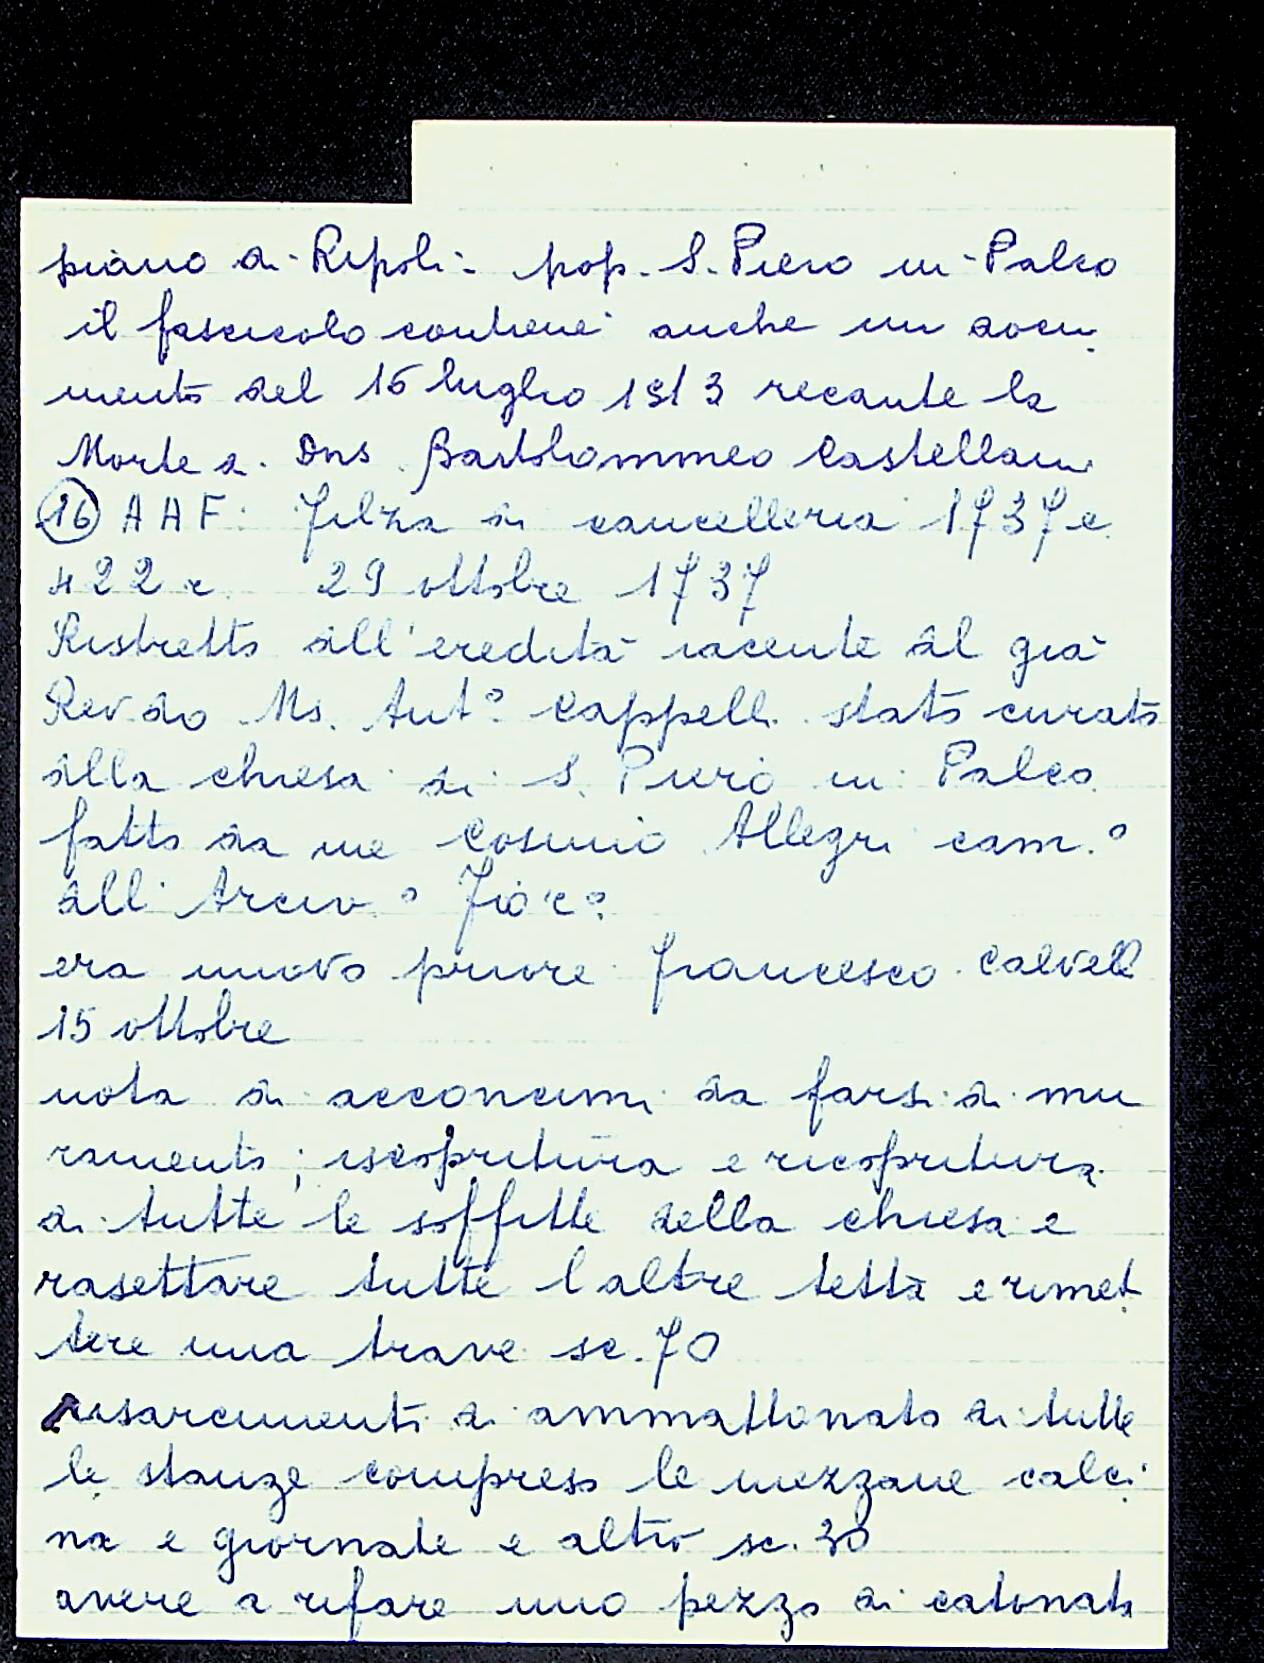 piano di Ripoli - pop. S. Piero in Palco
il fascicolo contiene anche un docu
mento del 16 luglio 1513 recante la
Morte di Dns Bartolommeo Castellani
(16) AAF: Filza di cancelleria 1737 c.
422 r. 29 ottobre 1737
Ristretto dell'eredità iacente del già
Rev.do Ms. Ant.° Cappelli stato curato
della chiesa di S. Piero in Palco
fatto da me Cosimo Allegri cam.°
dell'Arciv.° Fior.°
era nuovo priore Francesco Calvelli
15 ottobre
nota di acconcimi da farsi di mu
ramento; iscopritura e ricopritura
di tutte le soffitte della chiesa e
rasettare tutte l altre tetta e rimet
tere una trave sc. 70
risarcimenti di ammattonato di tutte
le stanze compreso le mezzane calci
na e giornate e altro sc. 30
avere a rifare uno pezzo di